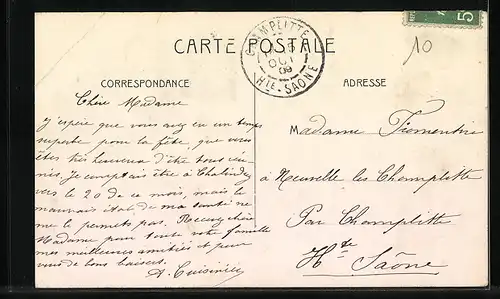 CARTE POSTALE
CHAMPLITTE
OCT
09
HTE-SAÔNE
5
10
CORRESPONDANCE
Chère Madame
J'espère que vous avez eu un temps
superbe pour la fête, que vous
êtes très heureux d'être tous réu-
nis, je comptais être à Chalindrey
vers le 20 de ce mois, mais le
mauvais état de ma santé ne
me le permets pas. Recevez chère
Madame pour toute votre famille
mes meilleures amitiés et pour
vous de bons baisers.
A. Cuisinier
ADRESSE
Madame
à Neuvelle les Champlitte
Par Champlitte
Hte Saône